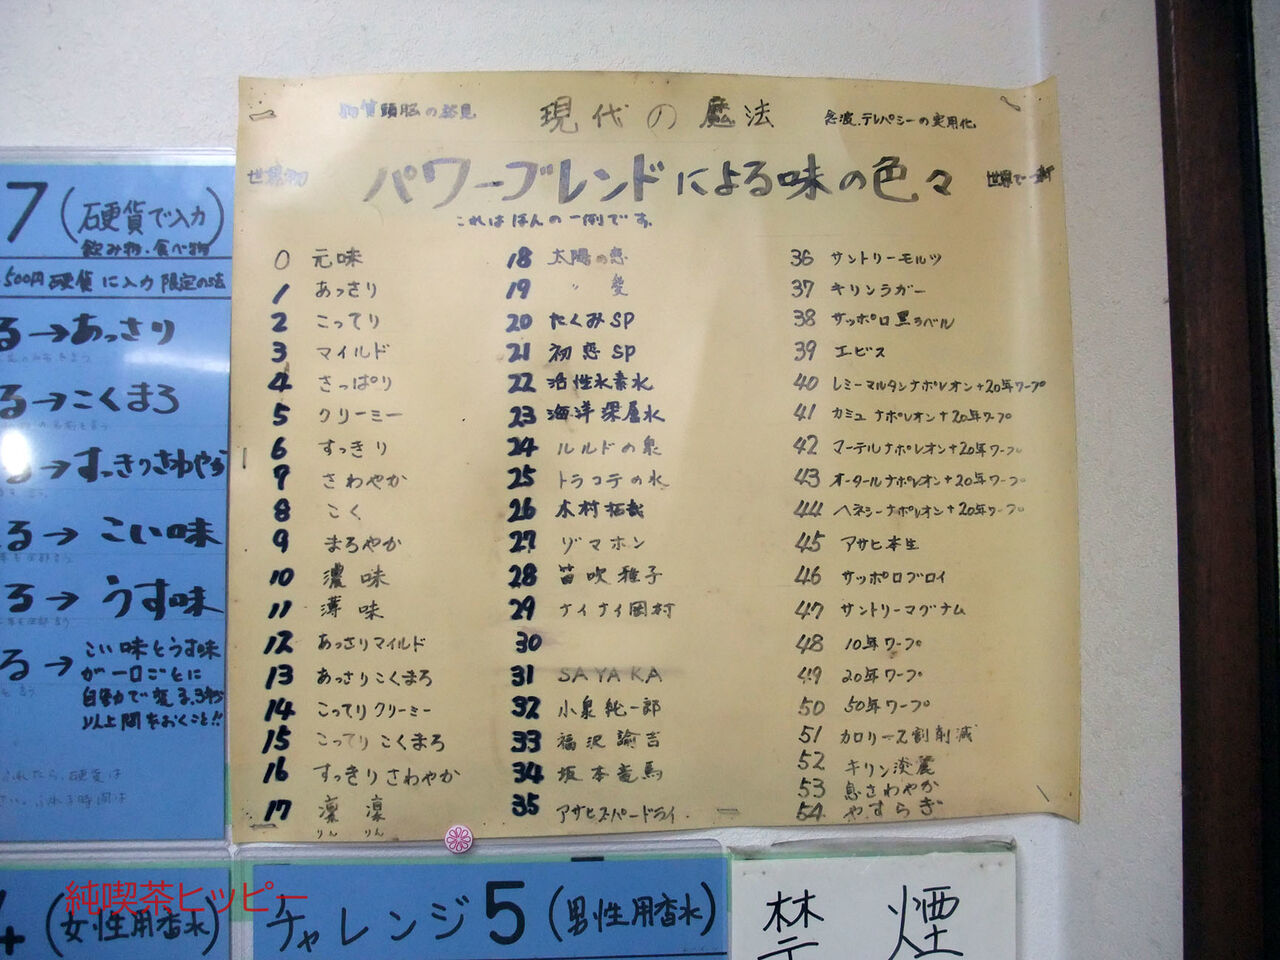 現代の魔法
念波、テレパシーの実用化
世界初
パワーブレンドによる味の色々
世界で一軒
これはほんの一例です。
0 元味
1 あっさり
2 こってり
3 マイルド
4 さっぱり
5 クリーミー
6 すっきり
7 さわやか
8 こく
9 まろやか
10 濃味
11 薄味
12 あっさりマイルド
13 あっさりこくまろ
14 こってりクリーミー
15 こってりこくまろ
16 すっきりさわやか
17 凛凛
りんりん
18 太陽の恋
19 〃 愛
20 たくみSP
21 初恋SP
22 活性水素水
23 海洋深層水
24 ルルドの泉
25 トラコテの水
26 木村拓哉
27 ゾマホン
28 笛吹雅子
29 ナイナイ岡村
30
31 SAYAKA
32 小泉純一郎
33 福沢諭吉
34 坂本竜馬
35 アサヒスーパードライ
36 サントリーモルツ
37 キリンラガー
38 サッポロ黒ラベル
39 エビス
40 レミーマルタンナポレオン+20年ワープ
41 カミュナポレオン+20年ワープ
42 マーテルナポレオン+20年ワープ
43 オータールナポレオン+20年ワープ
44 ヘネシーナポレオン+20年ワープ
45 アサヒ本生
46 サッポロブロイ
47 サントリーマグナム
48 10年ワープ
49 20年ワープ
50 50年ワープ
51 カロリー2割削減
52 キリン淡麗
53 息さわやか
54 やすらぎ
7 (硬貨で入力)
飲み物、食べ物
500円硬貨に入力限定の法
る→あっさり
る→こくまろ
る→すっきりさわやか
る→こい味
る→うす味
る→こい味とうす味
が一口ごとに
自動で変る、3秒
以上間をおくこと!!
4 (女性用香水)
チャレンジ5 (男性用香水)
禁煙
純喫茶ヒッピー